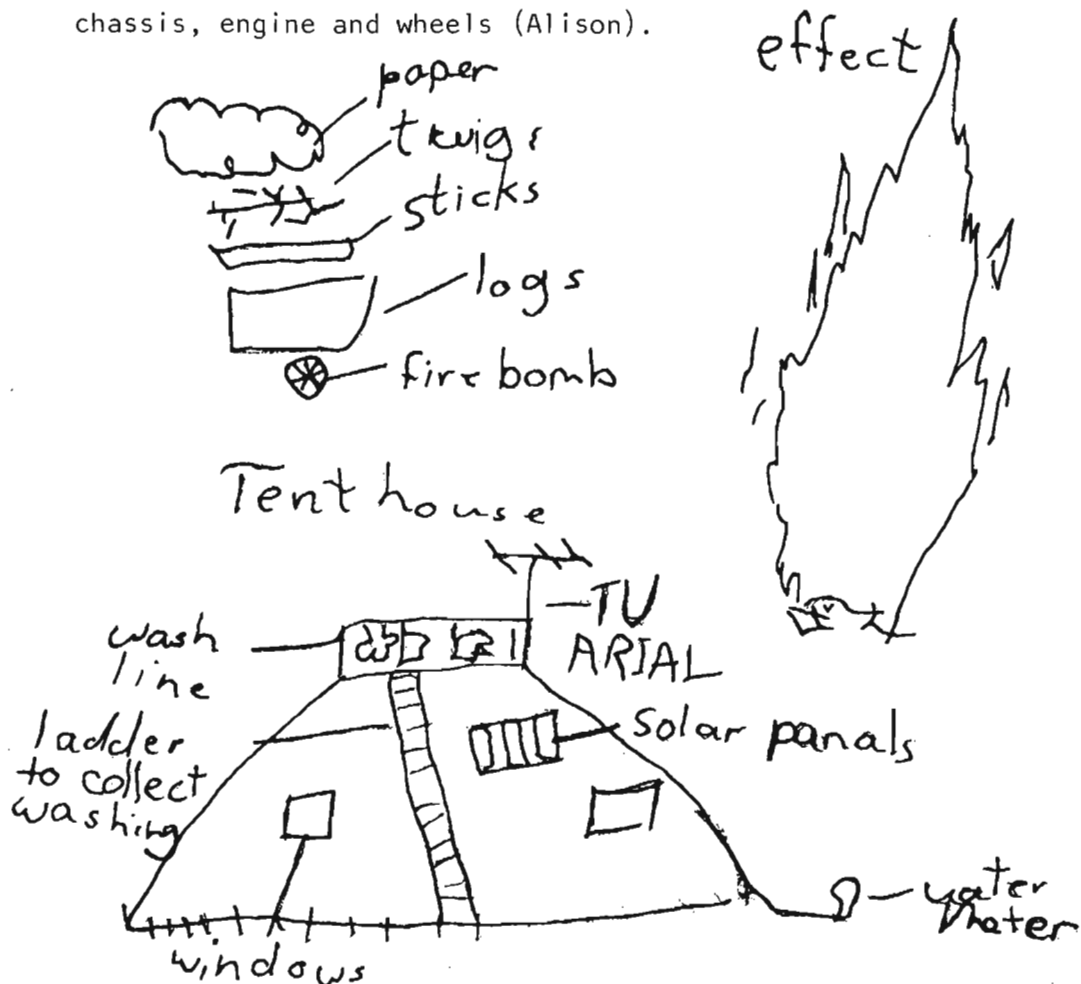 chassis, engine and wheels (Alison).
effect
paper
twigs
sticks
logs
fire bomb
Tent house
TV
ARIAL
wash
line
ladder
to collect
washing
solar panals
water
windows